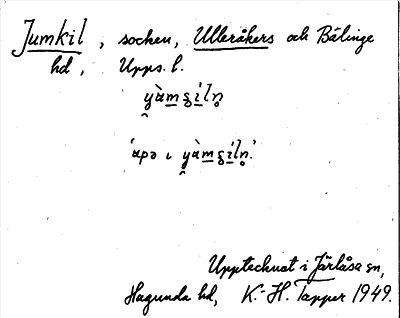 Jumkil, socken, Ulleråkers och Bälinge
hd, Upps. l.
Upptecknat i Järlåsa sn,
Hagunda hd, K.-H. Tapper 1949.